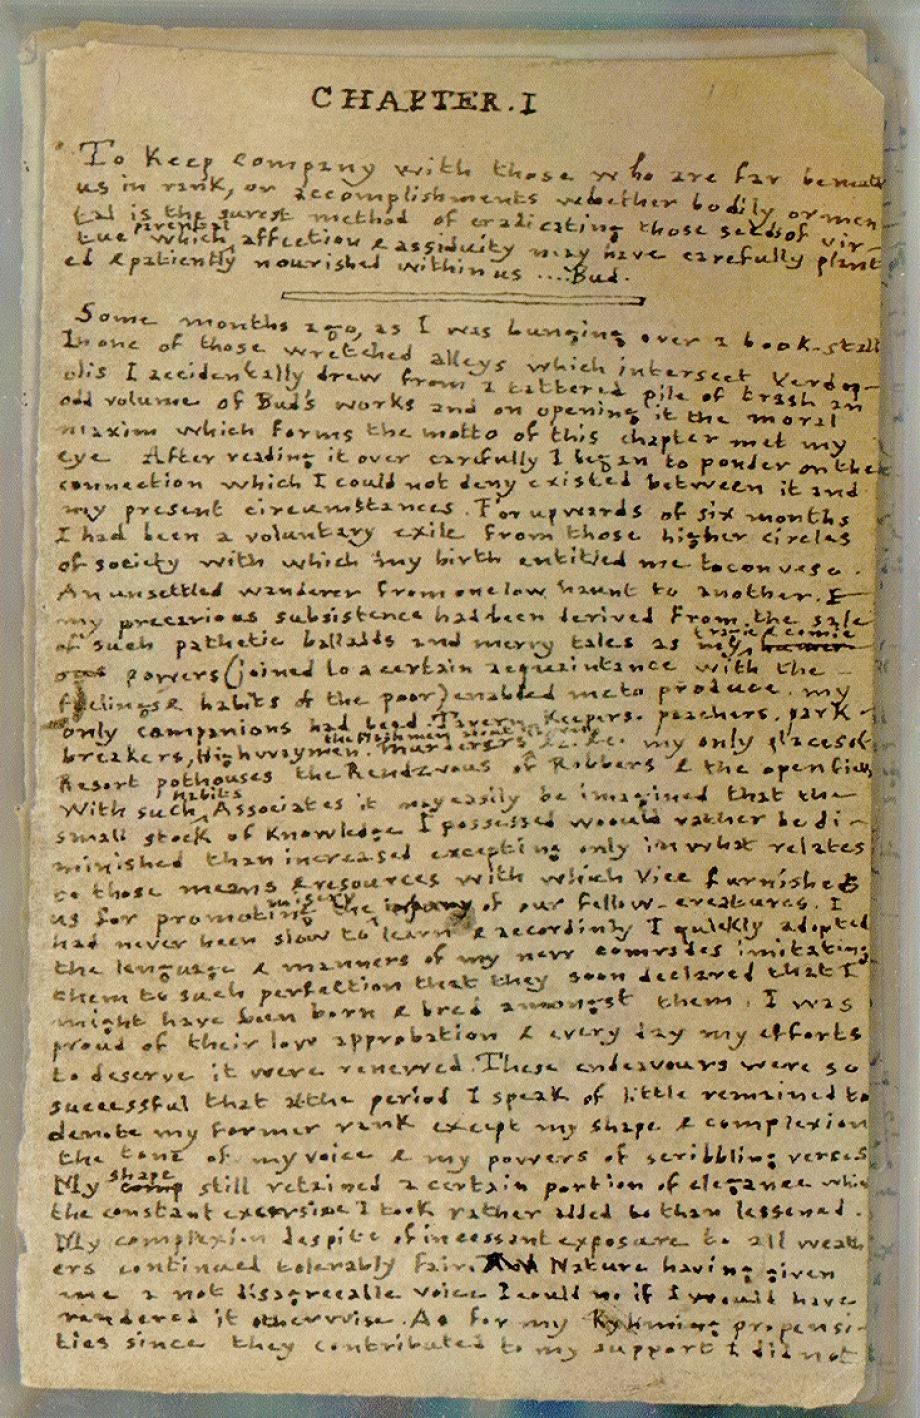 CHAPTER. I
To Keep company with those who are far beneath
us in rank, or accomplishments whether bodily or men-
tal is the surest method of eradicating those seeds of vir-
tue which parental affection & assiduity may have carefully plant
ed & patiently nourished within us .... Bud.
Some months ago, as I was hunging over a book-stall
In one of those wretched alleys which intersect Verdop-
olis I accidentally drew from a tattered pile of trash an
odd volume of Bud's works and on opening it the moral
maxim which forms the motto of this chapter met my
eye After reading it over carefully I began to ponder on the
connection which I could not deny existed between it and
my present circumstances. For upwards of six months
I had been a voluntary exile from those higher circles
of society with which my birth entitled me to convese.
An unsettled wanderer from one low haunt to another. I
my precarious subsistence had been derived from the sale
of such pathetic ballads and merry tales as my tragic & comic
powers (joined to a certain acquaintance with the
feelings & habits of the poor) enabled me to produce. my
only companions had been. Tavern Keepers. poachers. park-
breakers, Highwaymen. Murderers &c. &c. my only places of
Resort pothouses the Rendzvous of Robbers & the open field
With such habits Associates it may easily be imagined that the
small stock of Knowledge I possessed woould rather be di-
minished than increased excepting only in what relates
to those means & resources with which Vice furnishes
us for promoting the misery of our fellow-creatures. I
had never been slow to learn & accordinly I quickly adopted
the lenguage & manners of my new comrades imitating
them to such perfection that they soon declared that I
might have been born & bred amongst them. I was
proud of their low approbation & every day my efforts
to deserve it were renewed. These endeavours were so
successful that at the period I speak of little remained to
denote my former rank except my shape & complexion
the tone of my voice & my powers of scribbling verses
My shape still retained a certain portion of elegance whic
the constant exersise I took rather added to than lessened.
My complexion despite of incessant exposure to all weath
ers continued tolerably fair. Nature having given
me a not disagreealle voice I could no if I woould have
rendered it otherwise. As for my Ryhming propensi-
ties since they contributed to my support I did not